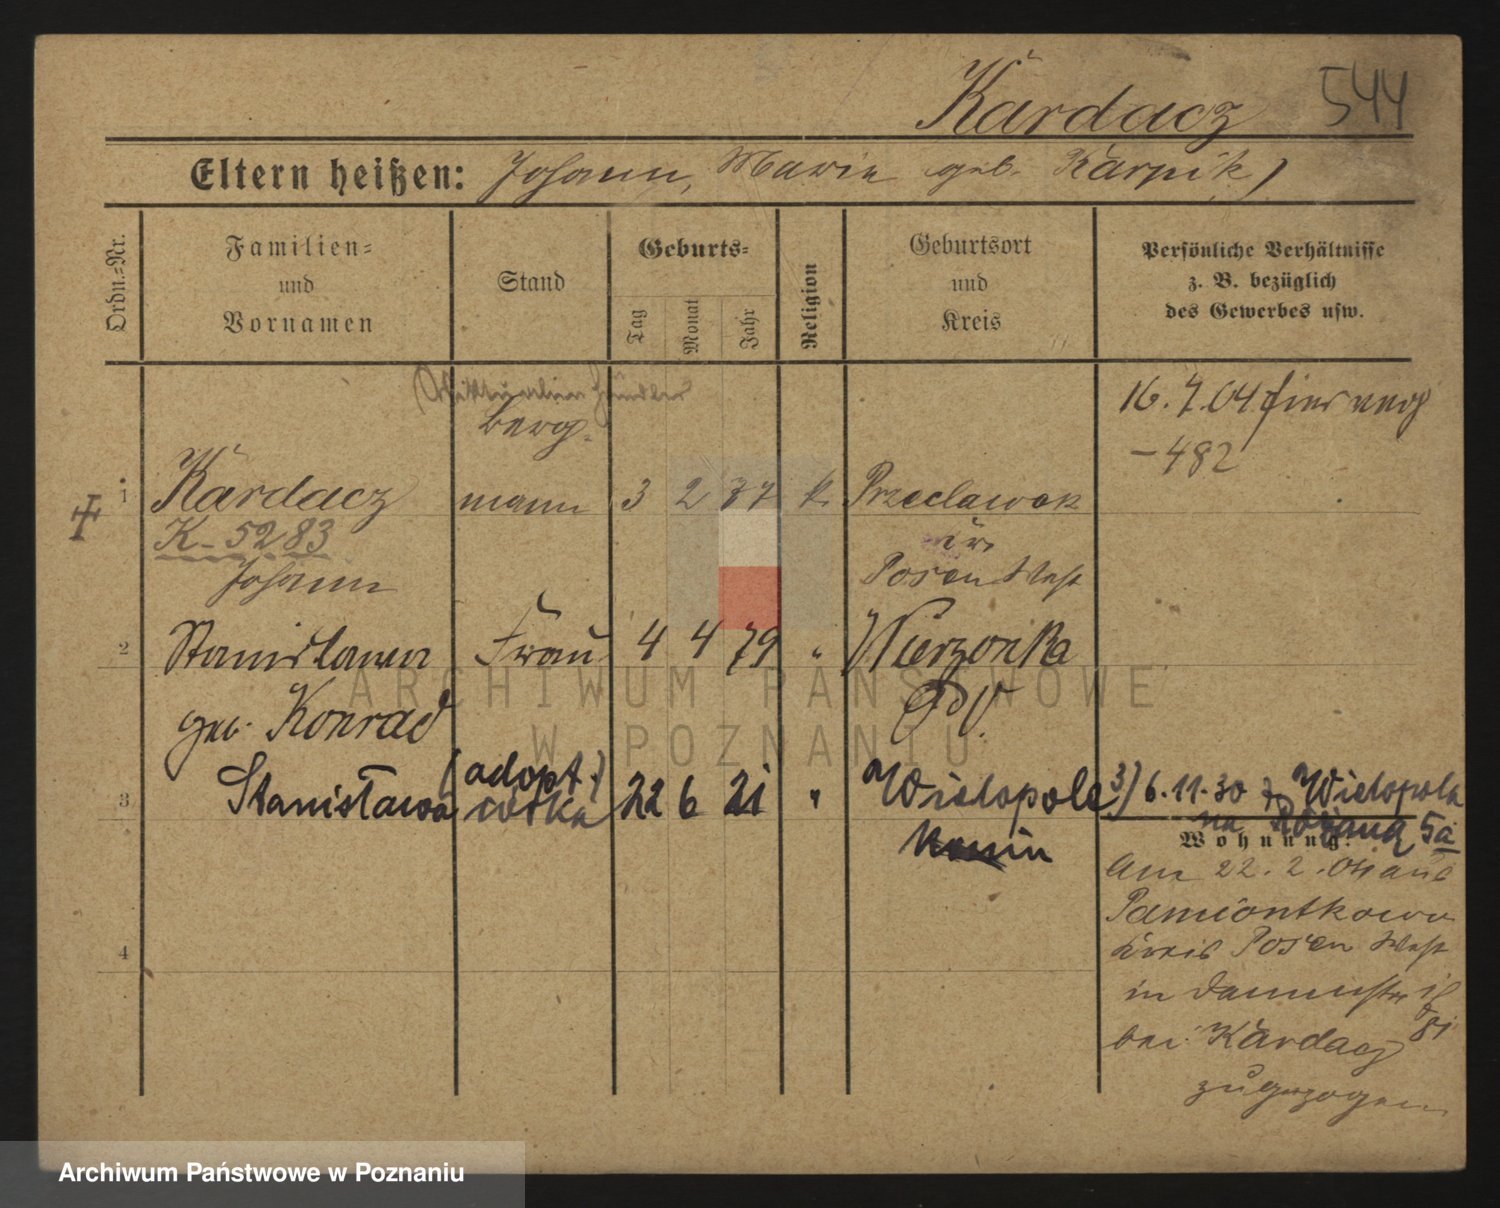 Kardacz 544
Eltern heißen: Johann, Marie geb. Karpik)
Ordn.=Nr.
Familien=
und
Vornamen
Stand
Geburts=
Tag
Monat
Jahr
Religion
Geburtsort
und
Kreis
Persönliche Verhältnisse
z. B. bezüglich
des Gewerbes usw.
berg-
16.7.04 hier
-482
1 Kardacz mann 3 2 77 k. Przeclawek
K-5283
Johann Posen West
2 Stanislawa Frau 4 4 79 " Wierzonka
geb. Konrad
(adopt.)
3 Stanisława córka 22 6 21 " Wielopole 3) 6.11.30 z Wielopola
na Różaną 5a
Konin
Wohnung.
Am 22.2.04 aus
Pamiontkowo
Kreis Posen West
in Dammstr
bei Kardacz
zugezogen
4
ARCHIWUM PAŃSTWOWE
W POZNANIU
Archiwum Państwowe w Poznaniu